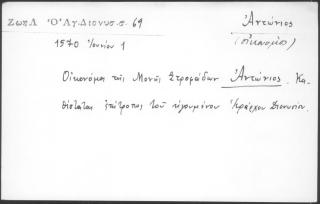 Ζωη Λ Ὁ Ἁγ. Διονυσ. σ. 69
Ἀντώνιος
(οἰκονόμος)
1570 Ἰουνίου 1
Οἰκονόμος τῆς Μονῆς Στροφάδων Ἀντώνιος. Κα-
θίσταται ἐπίτροπος τοῦ ἡγουμένου Διονυσίου.